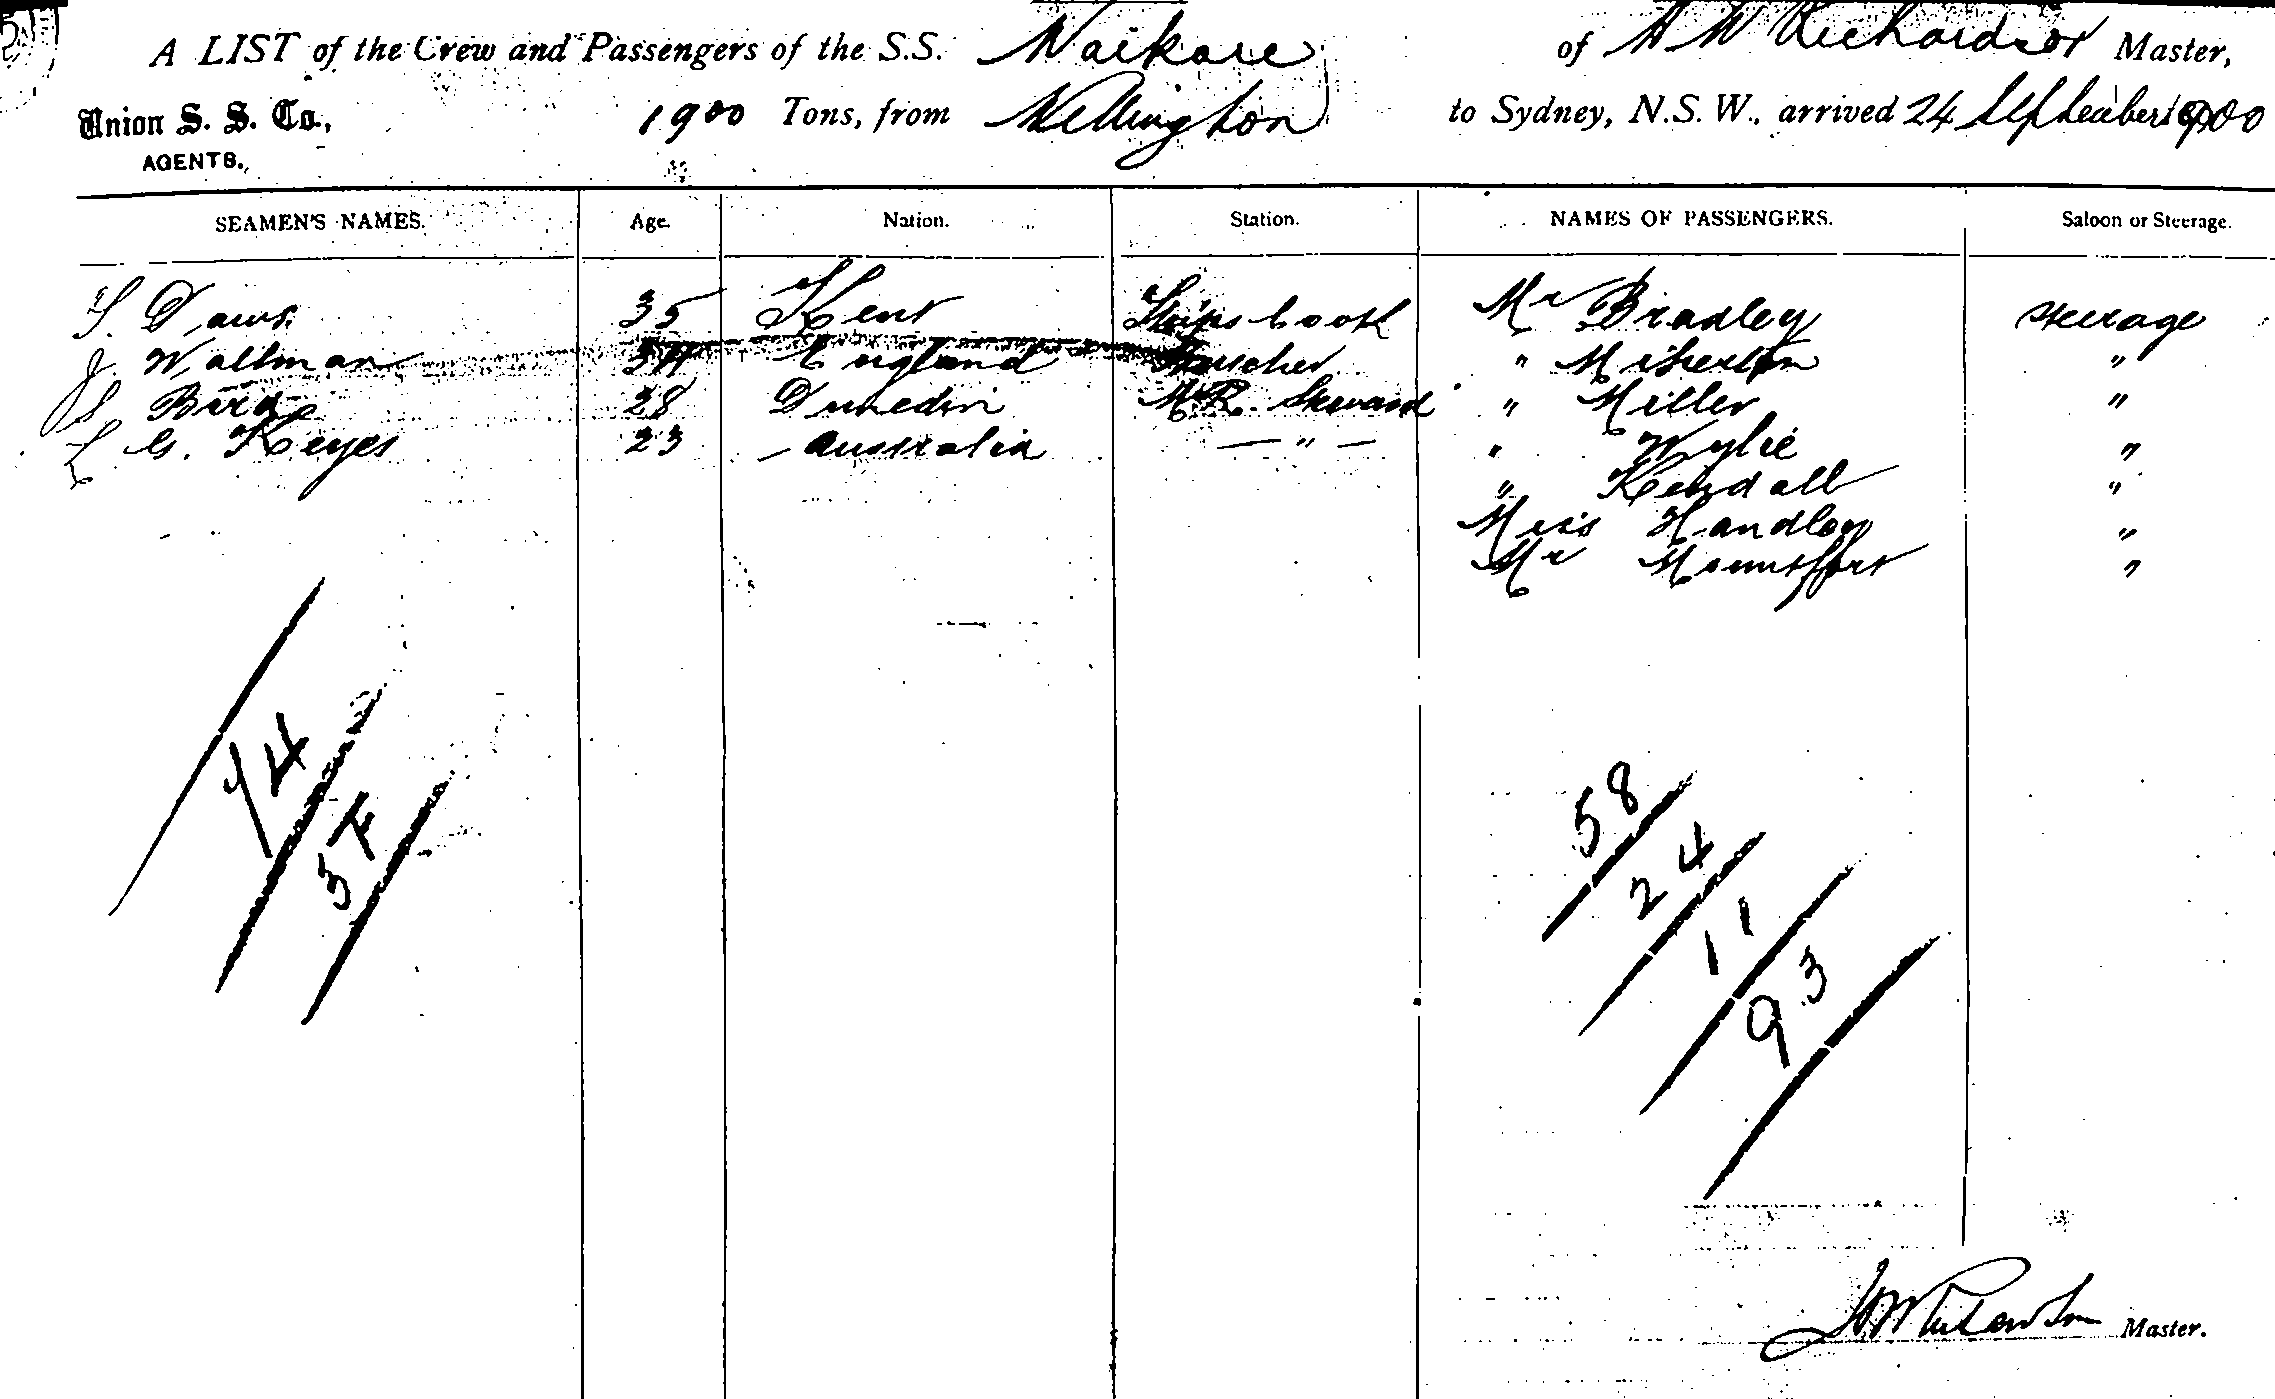 A LIST of the Crew and Passengers of the S.S. Waikare of A W Richardson Master,
Union S. S. Co., 1900 Tons, from Wellington to Sydney, N.S.W., arrived 24 September 1900
AGENTS.
SEAMEN'S NAMES. Age. Nation. Station. NAMES OF PASSENGERS. Saloon or Steerage.
35 Kent Ships Cook Mr Bradley Steerage
J. Wallman England Butcher " "
S. Bird 28 Dunedin Steward " Miller "
G. Keyes 23 Australia — " — " Wylie "
" Kendall "
Miss Handley "
Mr "
74
34
58
24
11
93
Master.